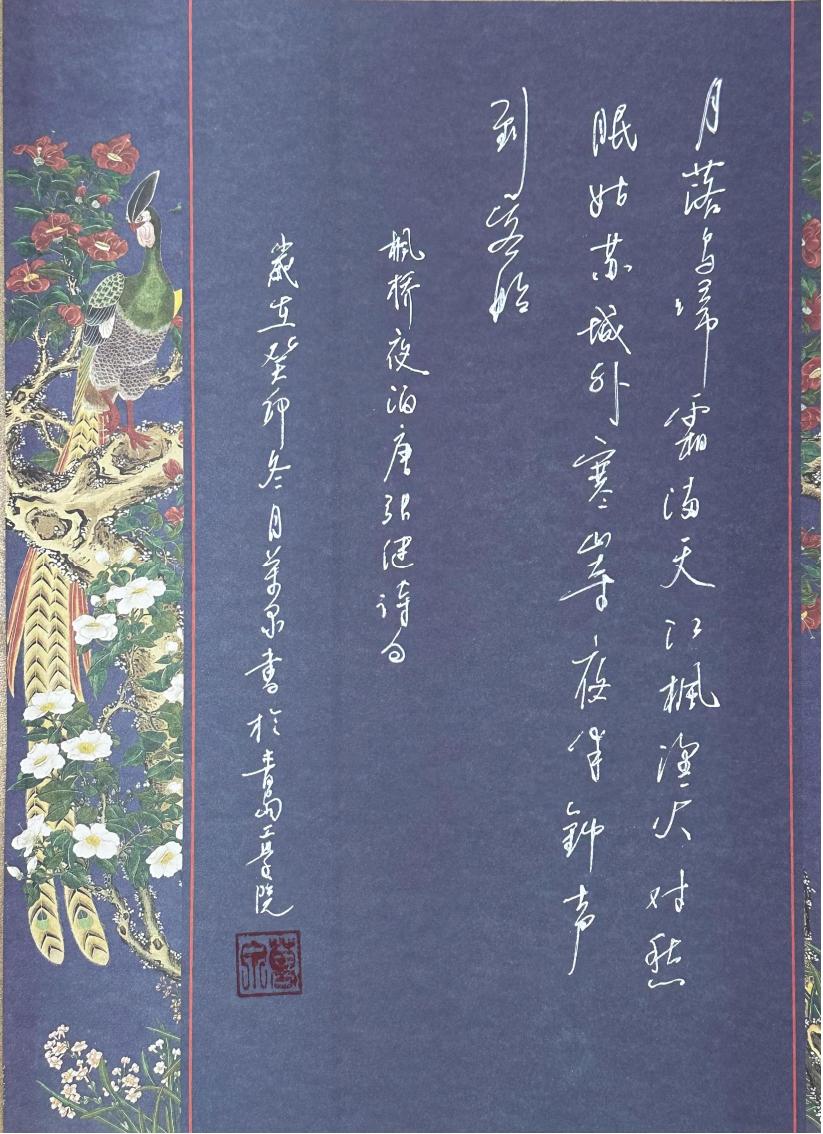 月落乌啼霜满天江楓渔火对愁
眠姑苏城外寒山寺夜半鈡声
到客船
楓桥夜泊唐张继诗句
歲在癸卯冬月萬泉書於青島工学院
萬泉